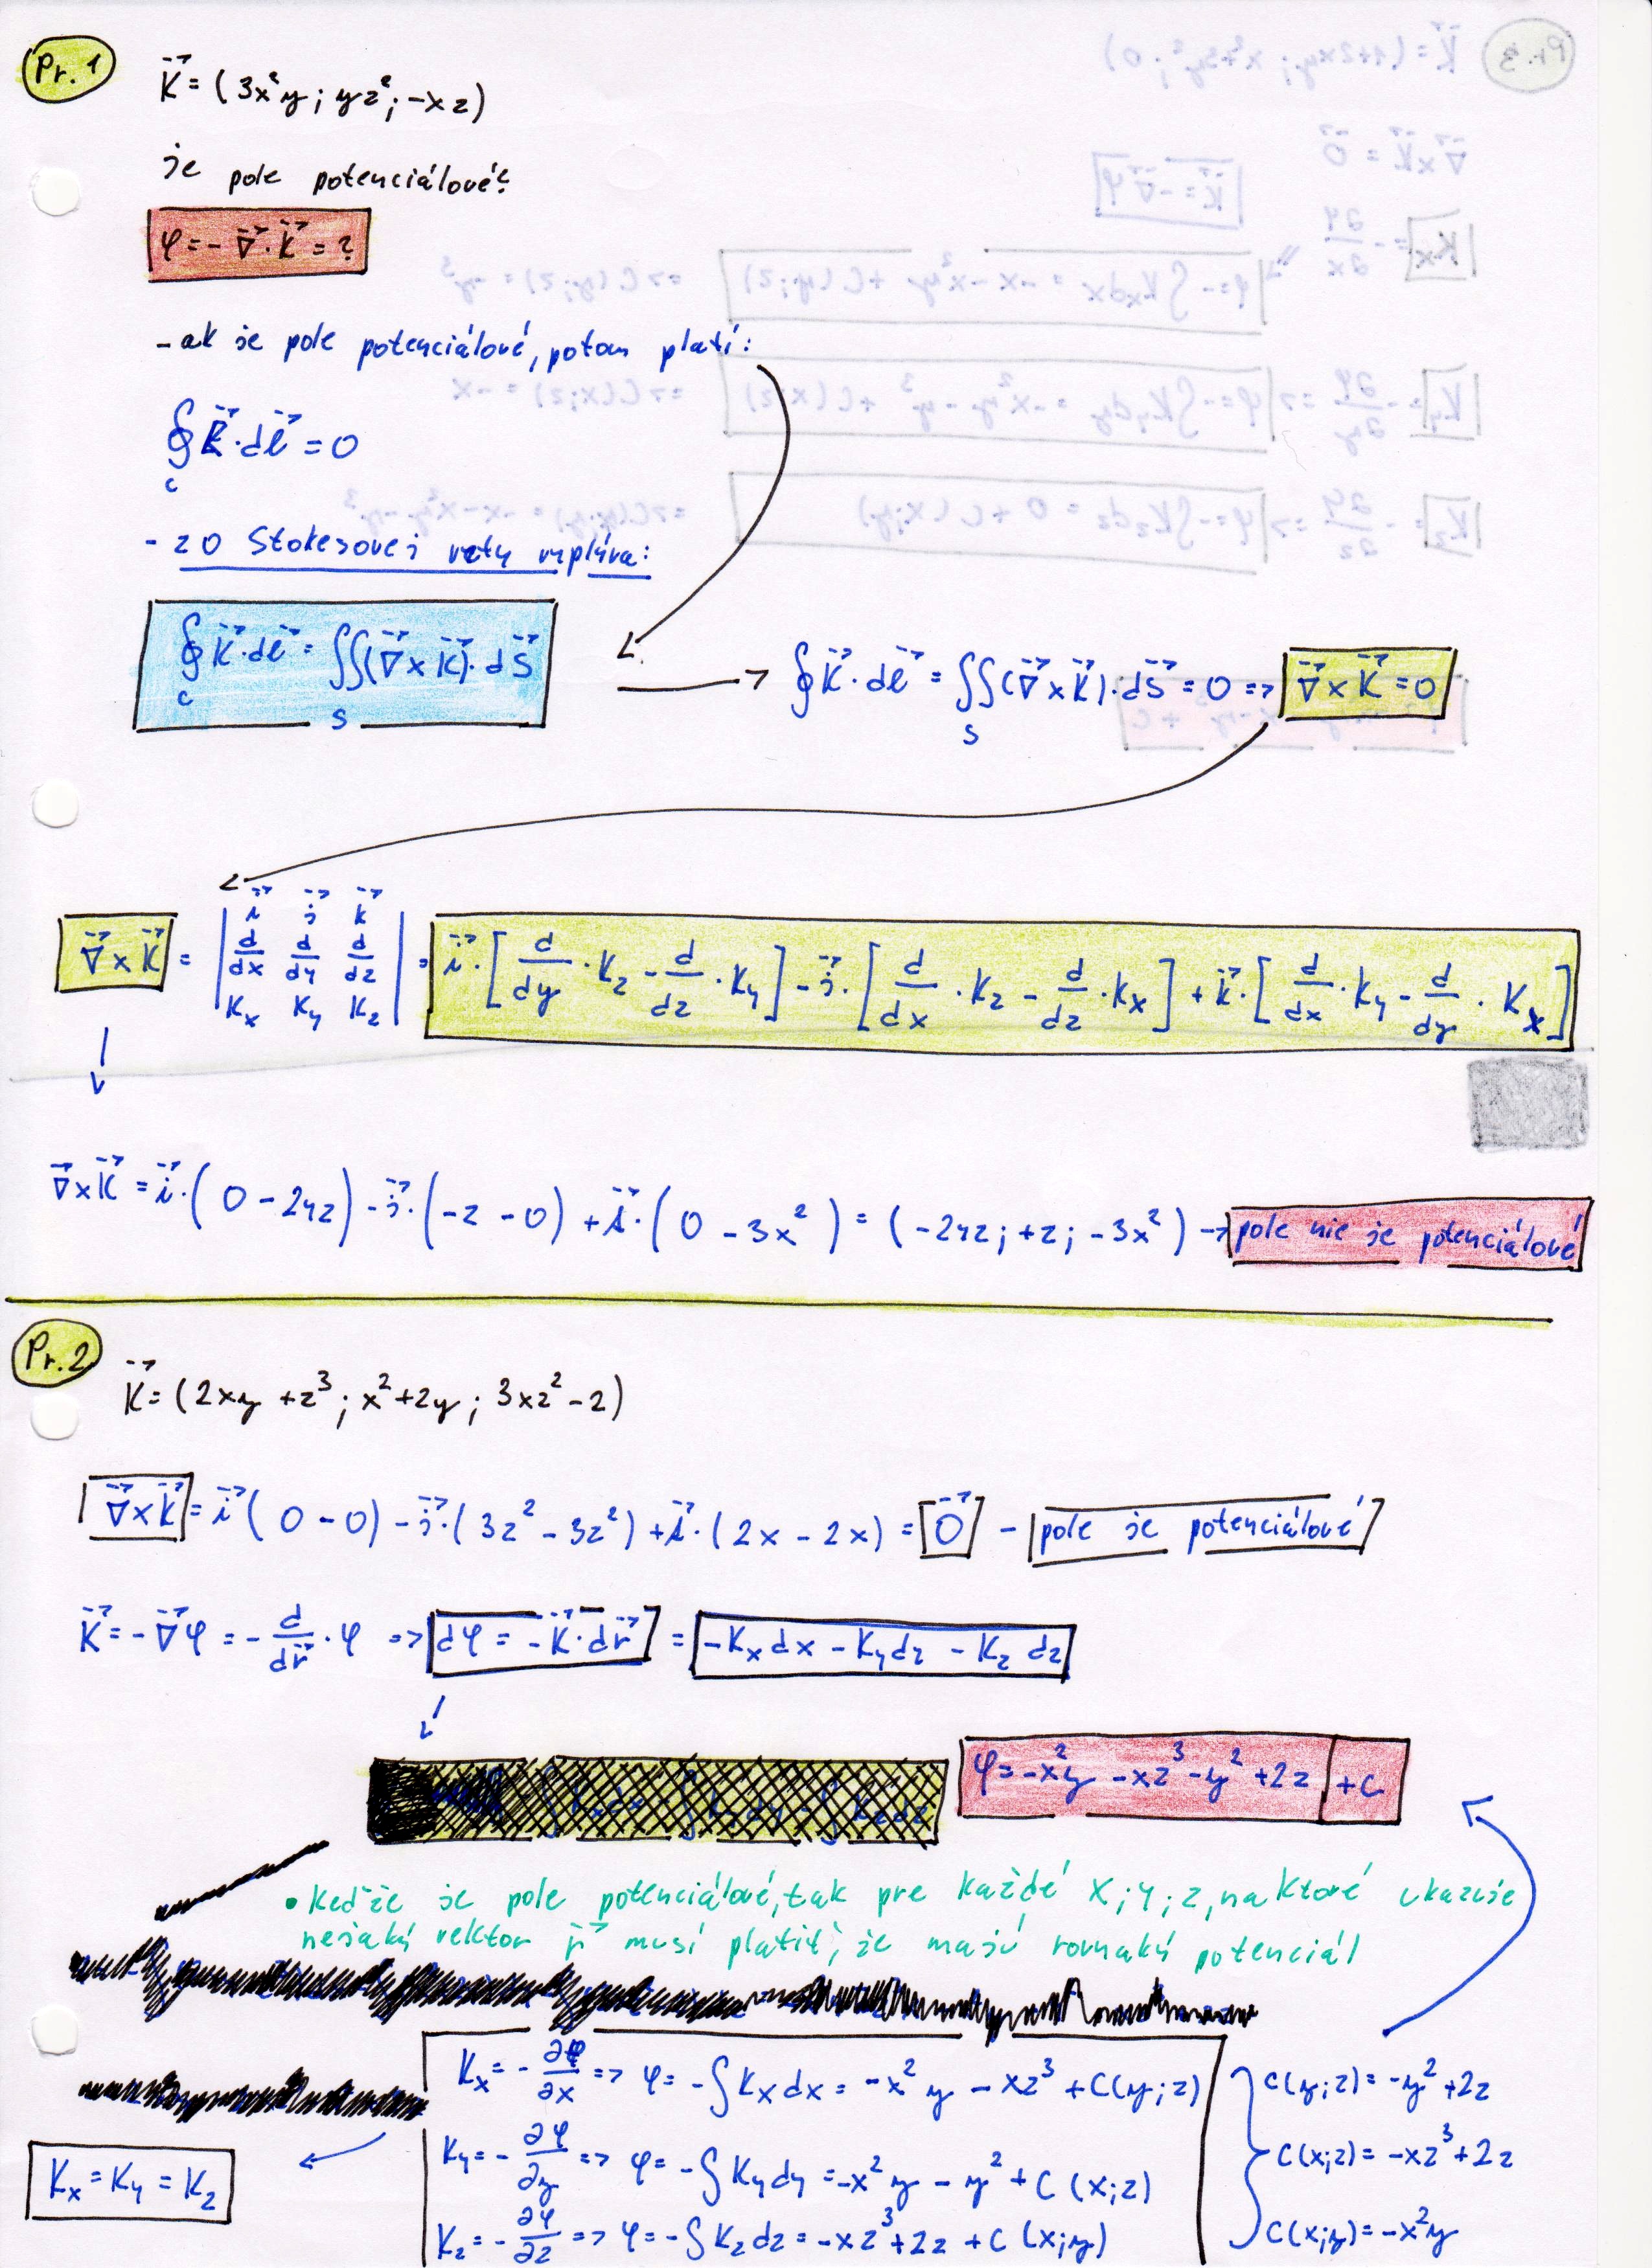 Pr. 1
K⃗ = (3x²y ; yz² ; -xz)
je pole potenciálové?
φ = - ∇⃗ · K⃗ = ?
- ak je pole potenciálové, potom platí:
∮_c K⃗ · dl⃗ = 0
- zo Stokesovej vety vyplýva:
∮_c K⃗ · dl⃗ = ∬_S (∇⃗ x K⃗) · dS⃗ → ∮ K⃗ · dl⃗ = ∬_S (∇⃗ x K⃗) · dS⃗ = 0 => ∇⃗ x K⃗ = 0
∇⃗ x K⃗ = | i⃗ j⃗ k⃗ ; d/dx d/dy d/dz ; Kx Ky Kz | = i⃗ · [d/dy · Kz - d/dz · Ky] - j⃗ · [d/dx · Kz - d/dz · Kx] + k⃗ · [d/dx · Ky - d/dy · Kx]
∇⃗ x K⃗ = i⃗ · (0 - 2yz) - j⃗ · (-z - 0) + k⃗ · (0 - 3x²) = (-2yz ; +z ; -3x²) → pole nie je potenciálové
Pr. 2
K⃗ = (2xy + z³ ; x² + 2y ; 3xz² - 2)
∇⃗ x K⃗ = i⃗ (0 - 0) - j⃗ · (3z² - 3z²) + k⃗ · (2x - 2x) = 0⃗ - pole je potenciálové
K⃗ = - ∇⃗φ = - d/dr⃗ · φ => dφ = - K⃗ · dr⃗ = -Kx dx - Ky dz - Kz dz
φ = -x²y - xz³ - y² + 2z + C
• Keďže je pole potenciálové, tak pre každé X ; Y ; Z, na ktoré ukazuje
nejaký vektor r⃗ musí platiť, že majú rovnaký potenciál
Kx = - ∂φ/∂x => φ = -∫ Kx dx = -x²y - xz³ + C(y;z) C(y;z) = -y² + 2z
Ky = - ∂φ/∂y => φ = -∫ Ky dy = -x²y - y² + C (x;z) C(x;z) = -xz³ + 2z
Kx = Ky = Kz
Kz = - ∂φ/∂z => φ = -∫ Kz dz = -xz³ + 2z + C (x;y) C(x;y) = -x²y